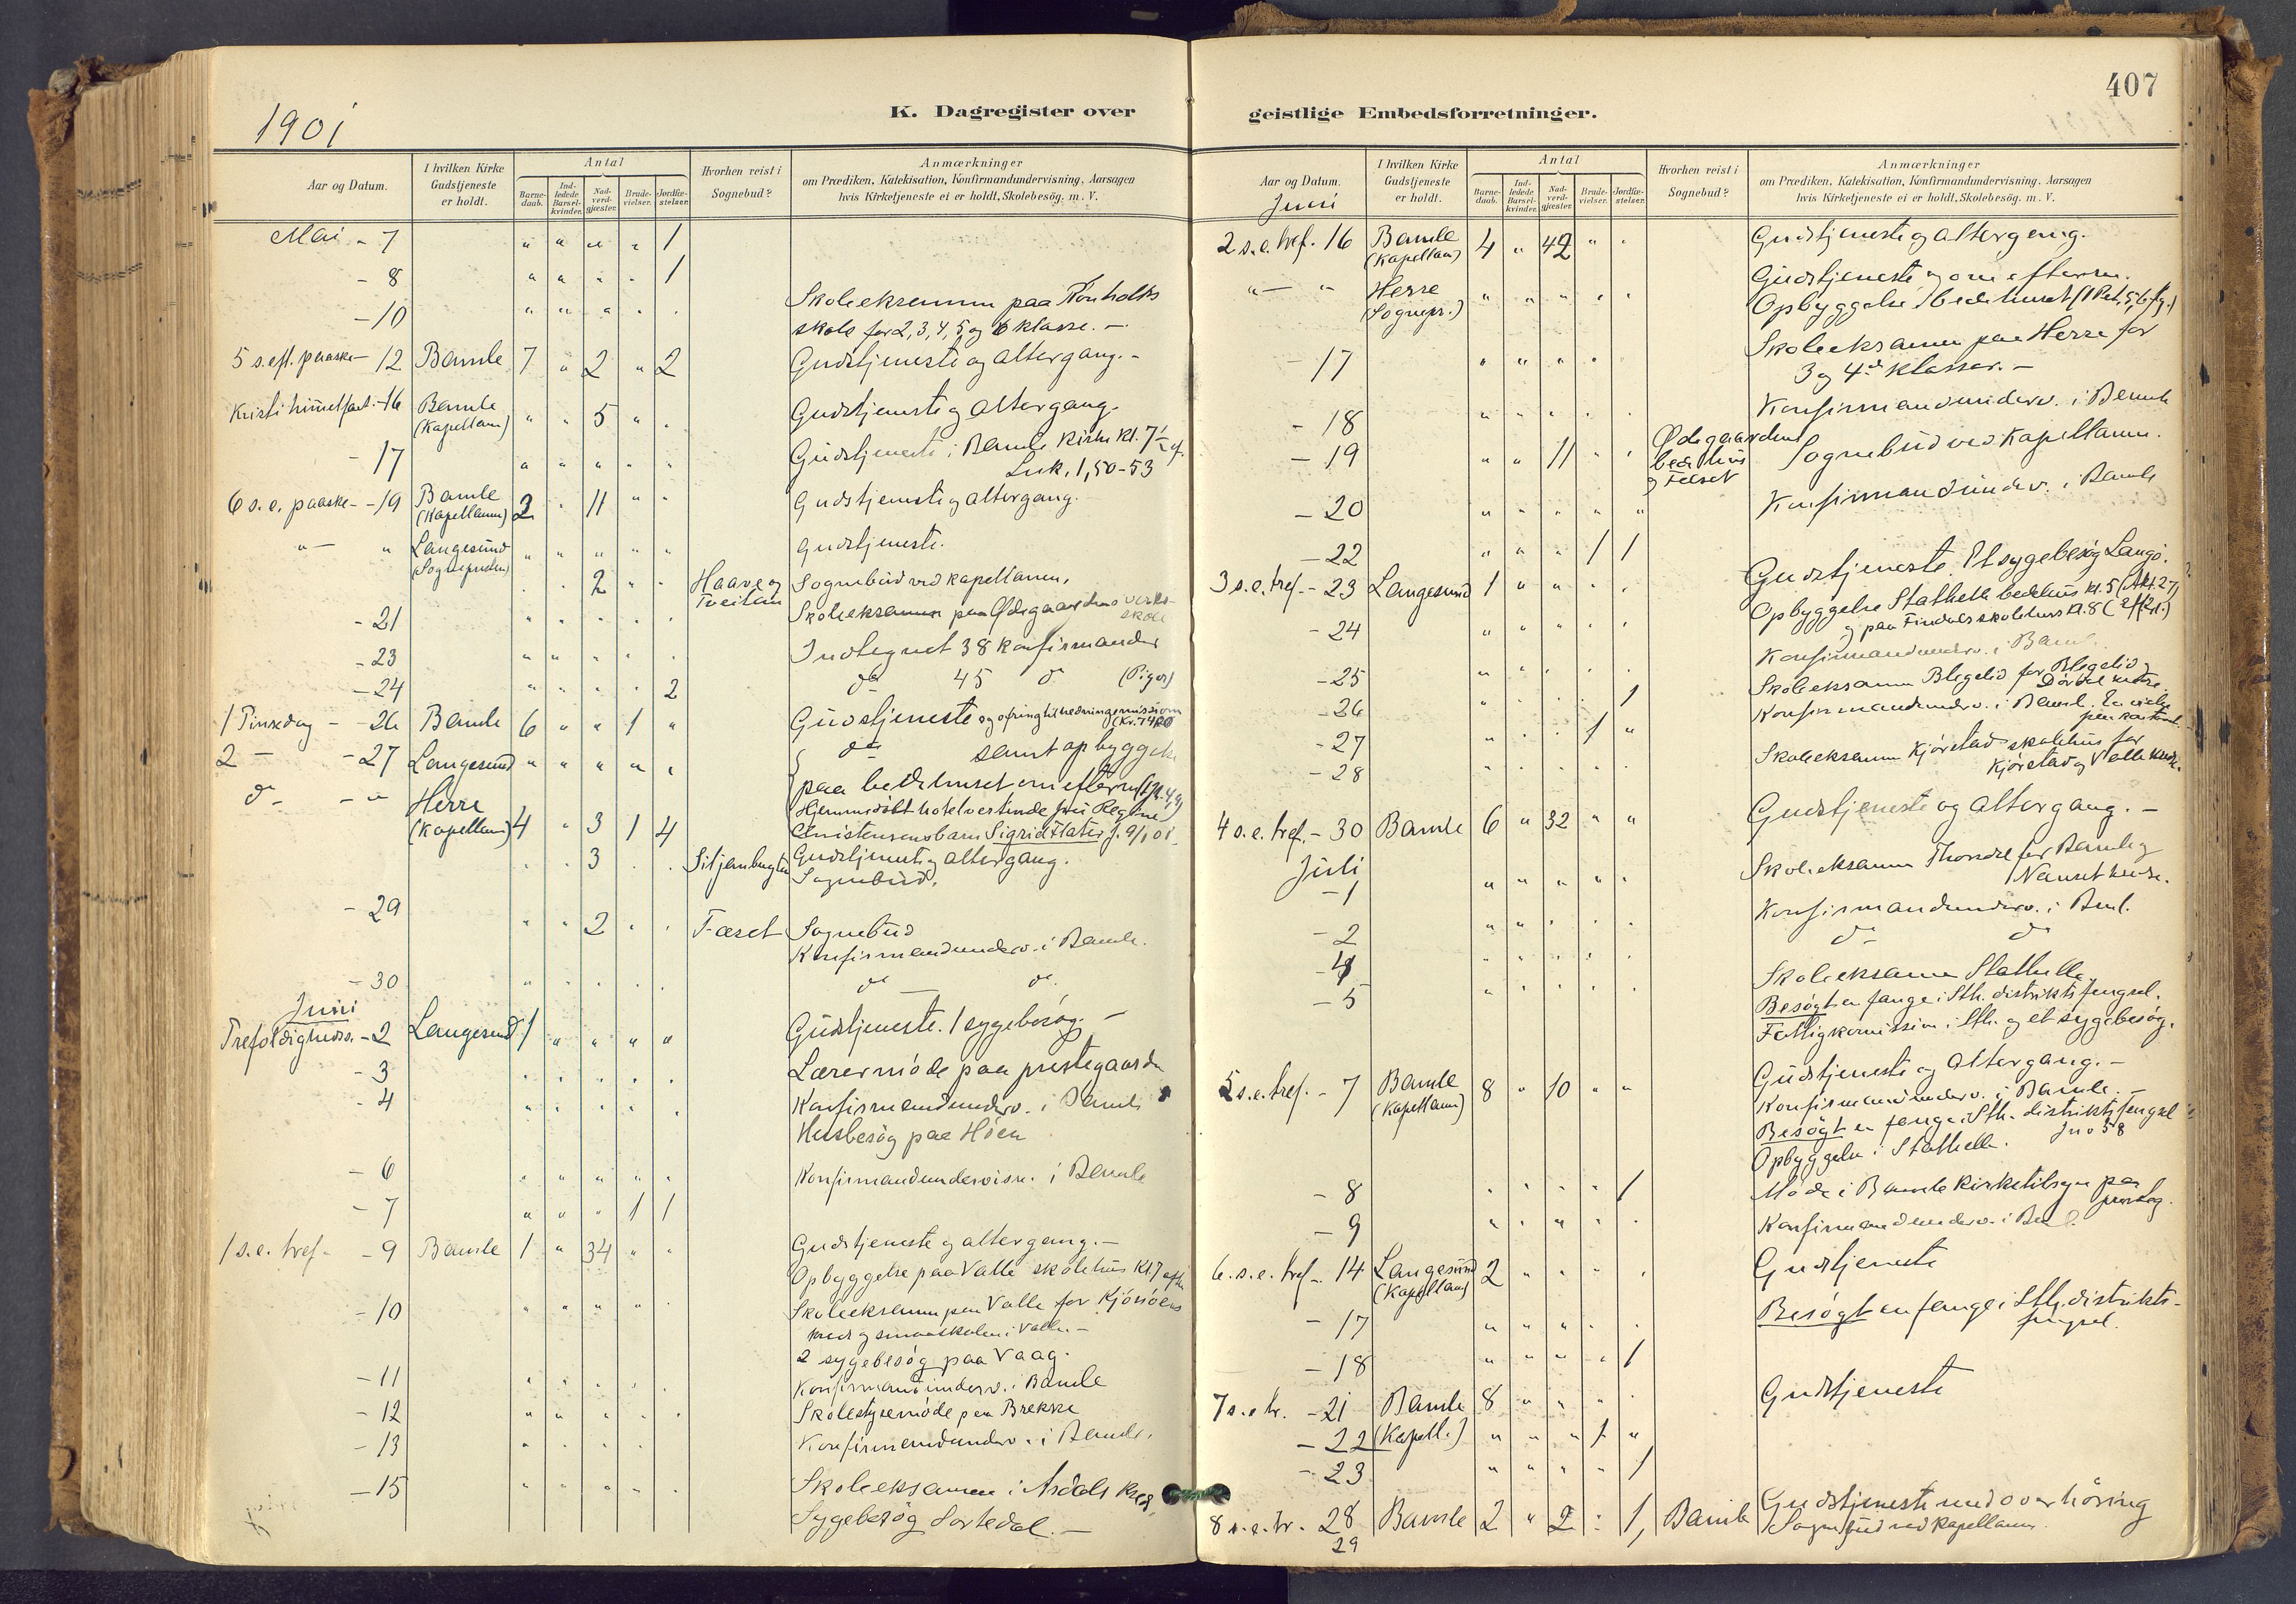 1901
K. Dagregister over
Aar og Datum.
I hvilken Kirke Gudstjeneste er holdt.
Antal
Barne-daab.
Ind-ledede Barsel-kvinder.
Nad-verd-gjæster.
Brude-vielser.
Jordfæ-stelser.
Hvorhen reist i Sognebud?
Anmærkninger
om Prædiken, Katekisation, Konfirmandundervisning, Aarsagen
hvis Kirketjeneste ei er holdt, Skolebesög. m. V.
Mai - 7 " " " " 1
- 8 " " " " 1
- 10 " " " " " Skoleeksamen paa Rønholts
skole for 2, 3, 4, 5 og 6 klasse. -
5 s. eft. paaske - 12 Bamle 7 " 2 " 2 Gudstjeneste og altergang. -
Kristi himmelfart. - 16 Bamle (Kapellanen) " " 5 " " Gudstjeneste og altergang.
- 17 " " " " " Gudstjeneste i Bamle kirke kl. 7
Luk. 1, 50-53
6 s. e. paaske - 19 Bamle (Kapellanen) 2 " 11 " " Gudstjeneste og altergang.
" " Langesund (Sognepresten) " " " " " Gudstjeneste.
" " 2 " " Haave og Tveitan Sognebud ved kapellanen.
- 21 " " " " " Skoleeksamen paa Ødegaardens verks-
skole
- 23 " " " " " Indtegnet 38 konfirmander
- 24 " " " " 2 do 45 do (Piger)
1 Pinsedag - 26 Bamle 6 " " 1 " Gudstjeneste og ofring til hedningemissionen
2 - - 27 Langesund " " " " " do samt opbyggelse
paa bedehuset om efterm.
do - " Herre (Kapellanen) 4 " 3 1 4 Hjemmedöbt hotelvertinde fru Regine
Christensens barn Sigrid
" " 3 " " Gudstjeneste og altergang.
Sognebud.
- 29 " " 2 " " Fæset Sognebud
Konfirmandunderv. i Bamle.
- 30 " " " " " do do
Juni
Trefoldigheds. - 2 Langesund 1 " " " " Gudstjeneste. 1 sygebesög. -
- 3 " " " " " Lærermöde paa prestegaarden
- 4 " " " " " Konfirmandunderv. i Bamle
Husbesög paa Höen
- 6 " " " " " Konfirmandundervisn. i Bamle
- 7 " " " 1 1
1 s. e. tref. - 9 Bamle 1 " 34 " " Gudstjeneste og altergang. -
Opbyggelse paa Valle skolehus kl. 7 efter
- 10 " " " " " Skoleeksamen paa Valle for
kreds og smaaskolen i Valle. -
2 sygebesög paa Vaag.
- 11 " " " " " Konfirmandunderv. i Bamle
- 12 " " " " " Skolestyremöde paa Brekke
- 13 " " " " Konfirmandunderv. i Bamle.
- 15 " " " " " Skoleeksamen i Aasdals kreds.
Sygebesög Sortedal. -
407
geistlige Embedsforretninger.
Aar og Datum.
I hvilken Kirke Gudstjeneste er holdt.
Antal
Barne-daab.
Ind-ledede Barsel-kvinder.
Nad-verd-gjæster.
Brude-vielser.
Jordfæ-stelser.
Hvorhen reist i Sognebud?
Anmærkninger
om Prædiken, Katekisation, Konfirmandundervisning, Aarsagen
hvis Kirketjeneste ei er holdt, Skolebesög. m. V.
Juni
2 s. e. tref. 16 Bamle (Kapellan) 4 " 42 " " Gudstjeneste og altergang.
" - " Herre (Sognepr.) " " " " " Gudstjeneste og om efterm.
Opbyggelse i bedehuset (1 Pet. 5, 6 fg.)
- 17 " " " " Skoleeksamen paa Herre for
3 og 4de klasser. -
- 18 " " " " " Konfirmandunderv. i Bamle
- 19 " " 11 " " Ødegaardens bedehus og Feset Sognebud ved Kapellanen.
- 20 " " " " " Konfirmandunderv. i Bamle
- 22 " " " 1 1
3 s. e. tref. - 23 Langesund 1 " " " " Gudstjeneste. Et sygebesög Langö.
Opbyggelse Stathelle bedehus kl. 5 (Akt. 27)
og paa Findals skolehus kl. 8
- 24 " " " " " Konfirmandunderv. i Bamle
- 25 " " " " Skoleeksamen Blegelid for Blegelid og
Dördal kredse
- 26 " " " " 1 Konfirmandunderv. i Bamle. En vielse
paa kontoret.
- 27 " " " 1 "
- 28 " " " " " Skoleeksamen Kjörstad skolehus for
Kjörstad og Valle kredse.
4 s. e. tref. - 30 Bamle 6 " 32 " " Gudstjeneste og altergang. -
Juli
- 1 " " " " " Skoleeksamen for Bamle og
Nanset kredse.
- 2 " " " " " Konfirmandunderv. i Baml.
- 4 " " " " " do do
- 5 " " " " " Skoleeksamen Stathelle.
Besögt en fange i Sth. distriktsfengsel.
Fattigkomission i Sth. og et sygebesög.
5 s. e. tref. - 7 Bamle (Kapellanen) 8 " 10 " " Gudstjeneste og altergang. -
Konfirmandunderv. i Bamle. -
Besögt en fange i Sth. distriktsfengsel
Opbyggelse i Stathelle.
- 8 " " " " 1 Möde i Bamle kirketilsyn paa
presteg.
- 9 " " " " " Konfirmandunderv. i Baml.
6. s. e. tref. - 14 Langesund (Kapellan) 2 " " " " Gudstjeneste
- 17 " " " " " Besögt en fange i Sth. distrikts-
fengsel.
- 18 " " " " 1
7 s. e. tr. - 21 Bamle 8 " " " " Gudstjeneste
- 22 (Kapell.) " " " 1 "
- 23 " " " " 1
8 s. e. tr. - 28 Bamle 2 " 2 " 1, Bamle Gudstjeneste med overhöring
29 Sognebud ved kapellanen